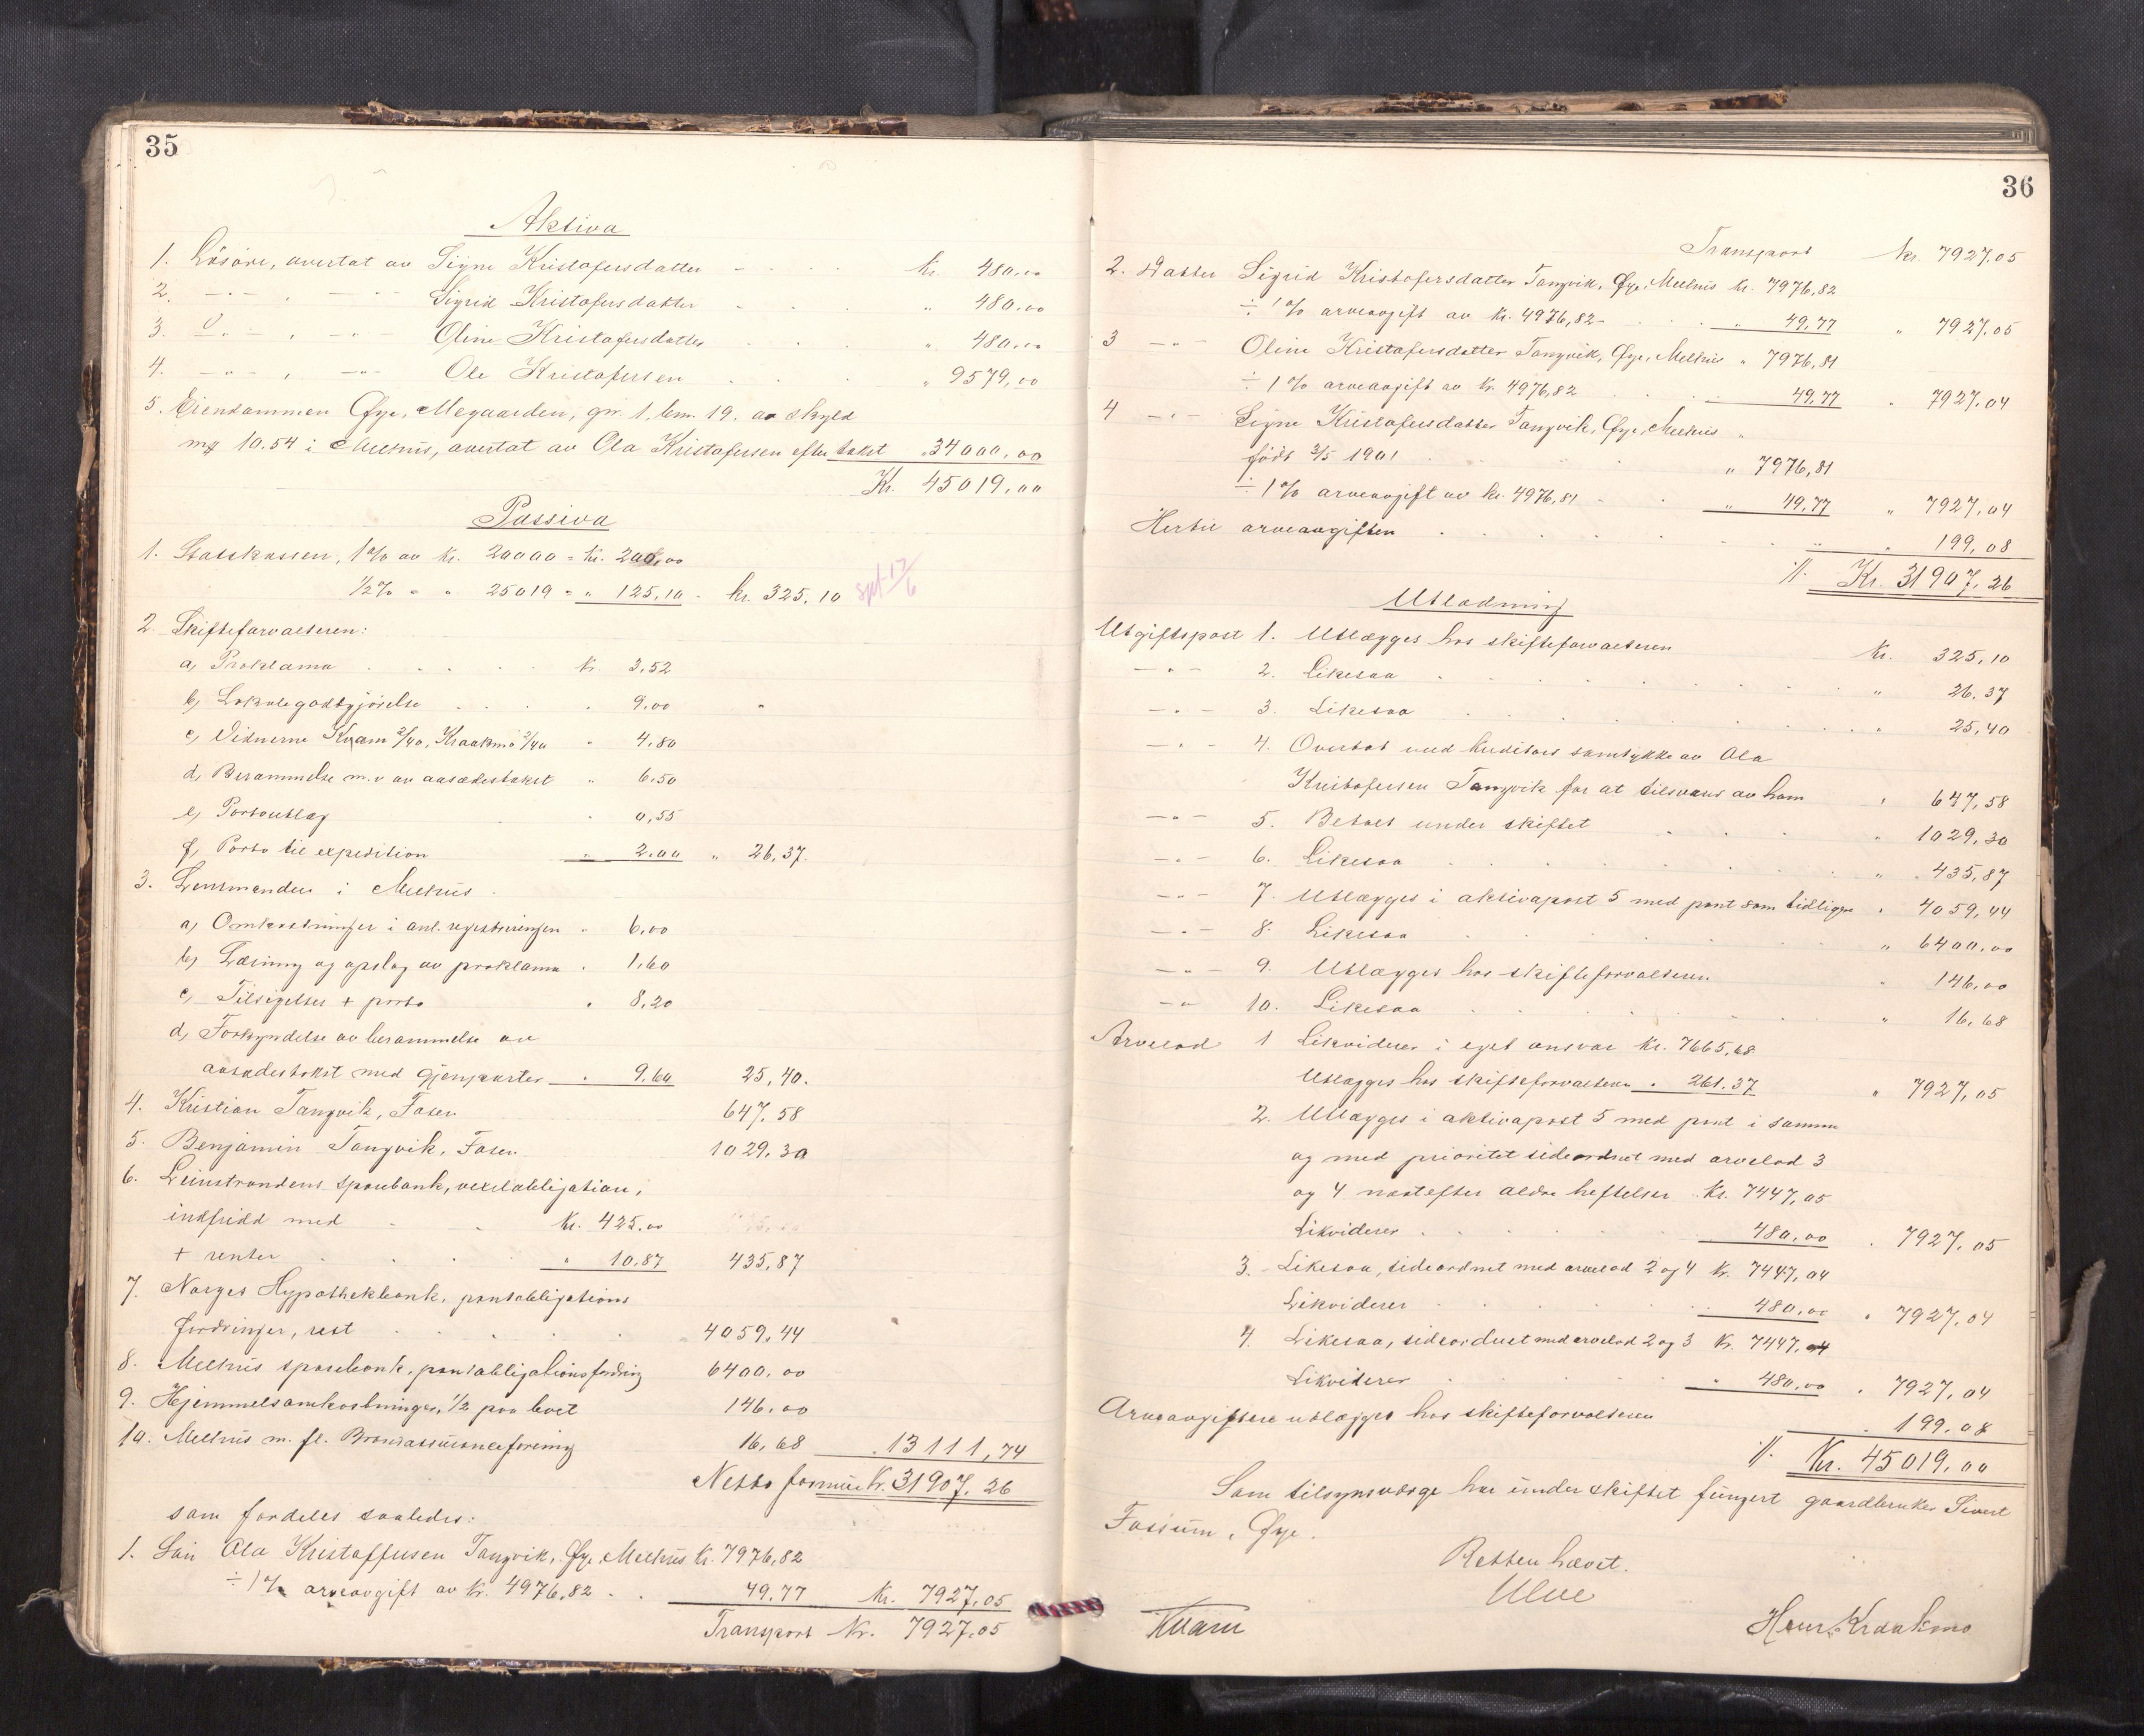 35
Aktiva
1. Løsøre, overtat av Signe Kristofersdatter kr. 480,00
2. -"- , -"- Sigrid Kristofersdatter " 480,00
3. -"- , -"- Oline Kristofersdatter " 480,00
4. -"- , -"- Ole Kristofersen " 9579,00
5. Eiendommen Øye, Megaarden, gnr. 1, brn. 19. av skyld
mk 10.54 i Melhus, overtat av Ola Kristofersen efter takst " 34000,00
Kr. 45019,00
Passiva
1. Statskassen, 1% av kr. 20000 = kr. 200,00
1/2% " " 25019 = " 125,10 - kr. 325,10
2. Skifteforvalteren:
a, Proklama kr. 3,52
b, Lokalegodtgjørelse " 9,00 "
c, Vidnerne Kvam 2/40, Kraakmo 2/40 " 4,80
d, Berammelse m.v av aasædestakst " 6,50
e, Portoutlæg " 0,55
f, Porto til expedition " 2,00 " 26,37.
3. Lensmanden i Melhus.
a, Omkostninger i anl. registreringen " 6,00
b, Læsning og opslag av proklama " 1,60
c, Tilsigelser + porto " 8,20
d, Forkyndelse av berammelse av
aasædestakst med gjenparter " 9,60 25,40.
4. Kristian Tangvik, Fosen 647,58
5. Benjamin Tangvik, Fosen 1029,30
6. Leinstrandens sparebank, vexelobligation,
indfridd med kr. 425,00
+ renter " 10,87 435,87
7. Norges Hypothekbank, pantobligations
fordringer, rest 4059,44
8. Melhus sparebank, pantobligationsfordring 6400,00
9. Hjemmelsomkostninger, 1/2 paa boet 146,00
10. Melhus m. fl. Brandassuranceforening 16,68 " 13111,74
Netto formue kr. 31907,26
som fordeles saaledes:
1. Søn Ola Kristoffersen Tangvik, Øye, Melhus kr. 7976,82
÷ 1% arveavgift av kr. 4976,82 49,77 kr. 7927,05
Transport kr. 7927,05
36
Transport kr. 7927,05
2. Datter Sigrid Kristofersdatter Tangvik, Øye, Melhus kr. 7976,82
÷ 1% arveavgift av kr. 4976,82 " 49,77 " 7927,05
3 -"- Oline Kristofersdatter Tangvik, Øye, Melhus " 7976,81
÷ 1% arveavgift av kr. 4976,82 49,77 " 7927,04
4 -"- Signe Kristofersdatter Tangvik, Øye, Melhus "
født 3/5 1901 " 7976,81
÷ 1% arveavgift av kr. 4976,81 " 49,77 " 7927,04
Hertil arveavgiften " 199,08
Kr. 31907,26
Utlodning
Utgiftspost 1. Utlægges hos skifteforvalteren kr. 325,10
-"- 2. Likesaa " 26,37
-"- 3. Likesaa " 25,40
-"- 4. Overtat med kreditors samtykke av Ola
Kristofersen Tangvik for at tilsvares av ham " 647,58
-"- 5. Betalt under skiftet " 1029,30
-"- 6. Likesaa " 435,87
-"- 7. Utlægges i aktivapost 5 med pant som tidligere " 4059,44
-"- 8. Likesaa " 6400,00
-"- 9. Utlægges hos skifteforvalteren " 146,00
-"- 10. Likesaa " 16,68
Arvelod 1 Likviderer i eget ansvar kr. 7665,68
Utlægges hos skifteforvalteren " 261,37 " 7927,05
2. Utlægges i aktivapost 5 med pant i samme
og med prioritet sideordnet med arvelod 3
og 4 næstefter ældre heftelser kr. 7447,05
Likviderer 480,00 " 7927,05
3. Likesaa, sideordnet med arvelod 2 og 4 kr. 7447,04
Likviderer 480,00 " 7927,04
4. Likesaa, sideordnet med arvelod 2 og 3 kr. 7447,04
Likviderer " 480,00 " 7927,04
Arveavgiften utlægges hos skifteforvalteren " 199,08
Kr. 45019,00
Som tilsynsværge har under skiftet fungert gaardbruker Sivert
Fossum, Øye.
Retten hævet.
Ulve
Kvam
Hans Kraakmo